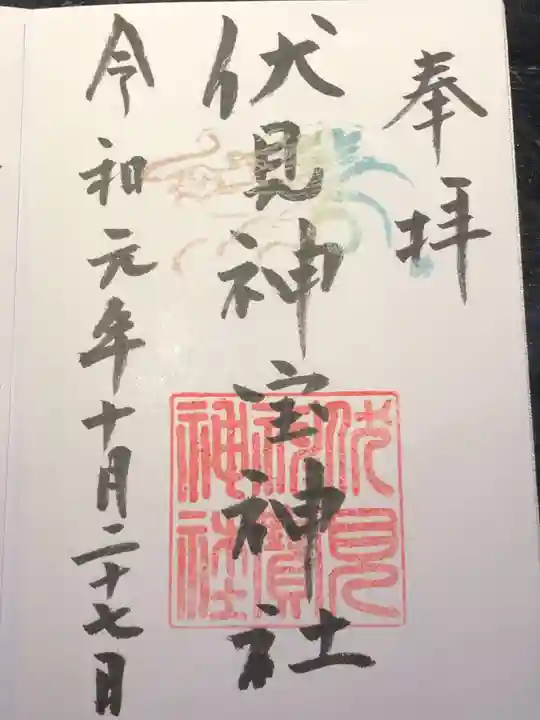 奉拝
伏見神宝神社
伏見
神寶
神社
令和元年十月二十七日